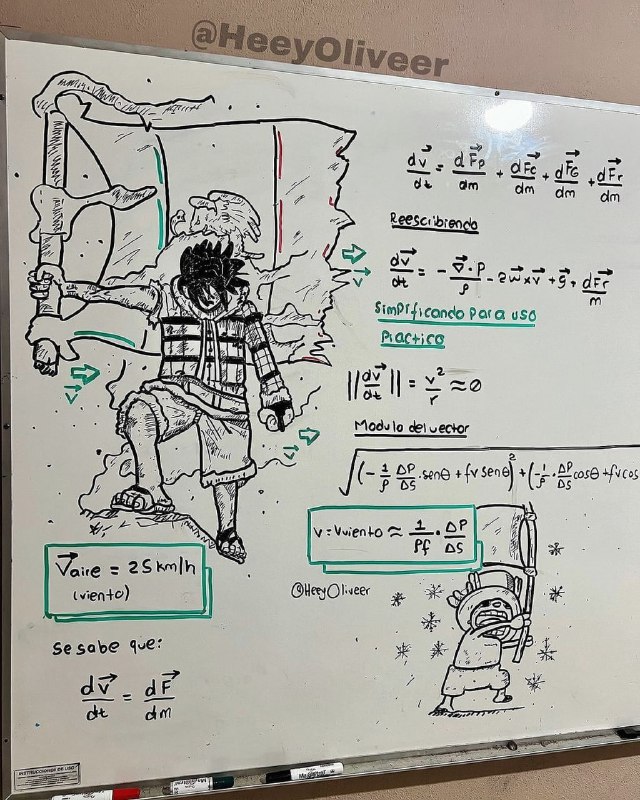 @HeeyOliveer
dv⃗/dt = dF⃗p/dm + dF⃗c/dm + dF⃗G/dm + dF⃗r/dm
Reescribiendo
dv⃗/dt = - ∇⃗·P/ρ - 2w⃗×v⃗ + g⃗ + dF⃗r/m
Simplificando para uso
Practico
||dv⃗/dt|| = v²/r ≈ 0
Modulo del vector
√(-1/ρ ΔP/ΔS · senθ + fv senθ)² + (-1/ρ · ΔP/ΔS cosθ + fv cos
v = Vviento ≈ 1/ρf · ΔP/ΔS
v⃗
v⃗
v⃗
V⃗aire = 25km/h
(viento)
@HeeyOliveer
se sabe que:
dv⃗/dt = dF⃗/dm
INSTRUCCIONES DE USO